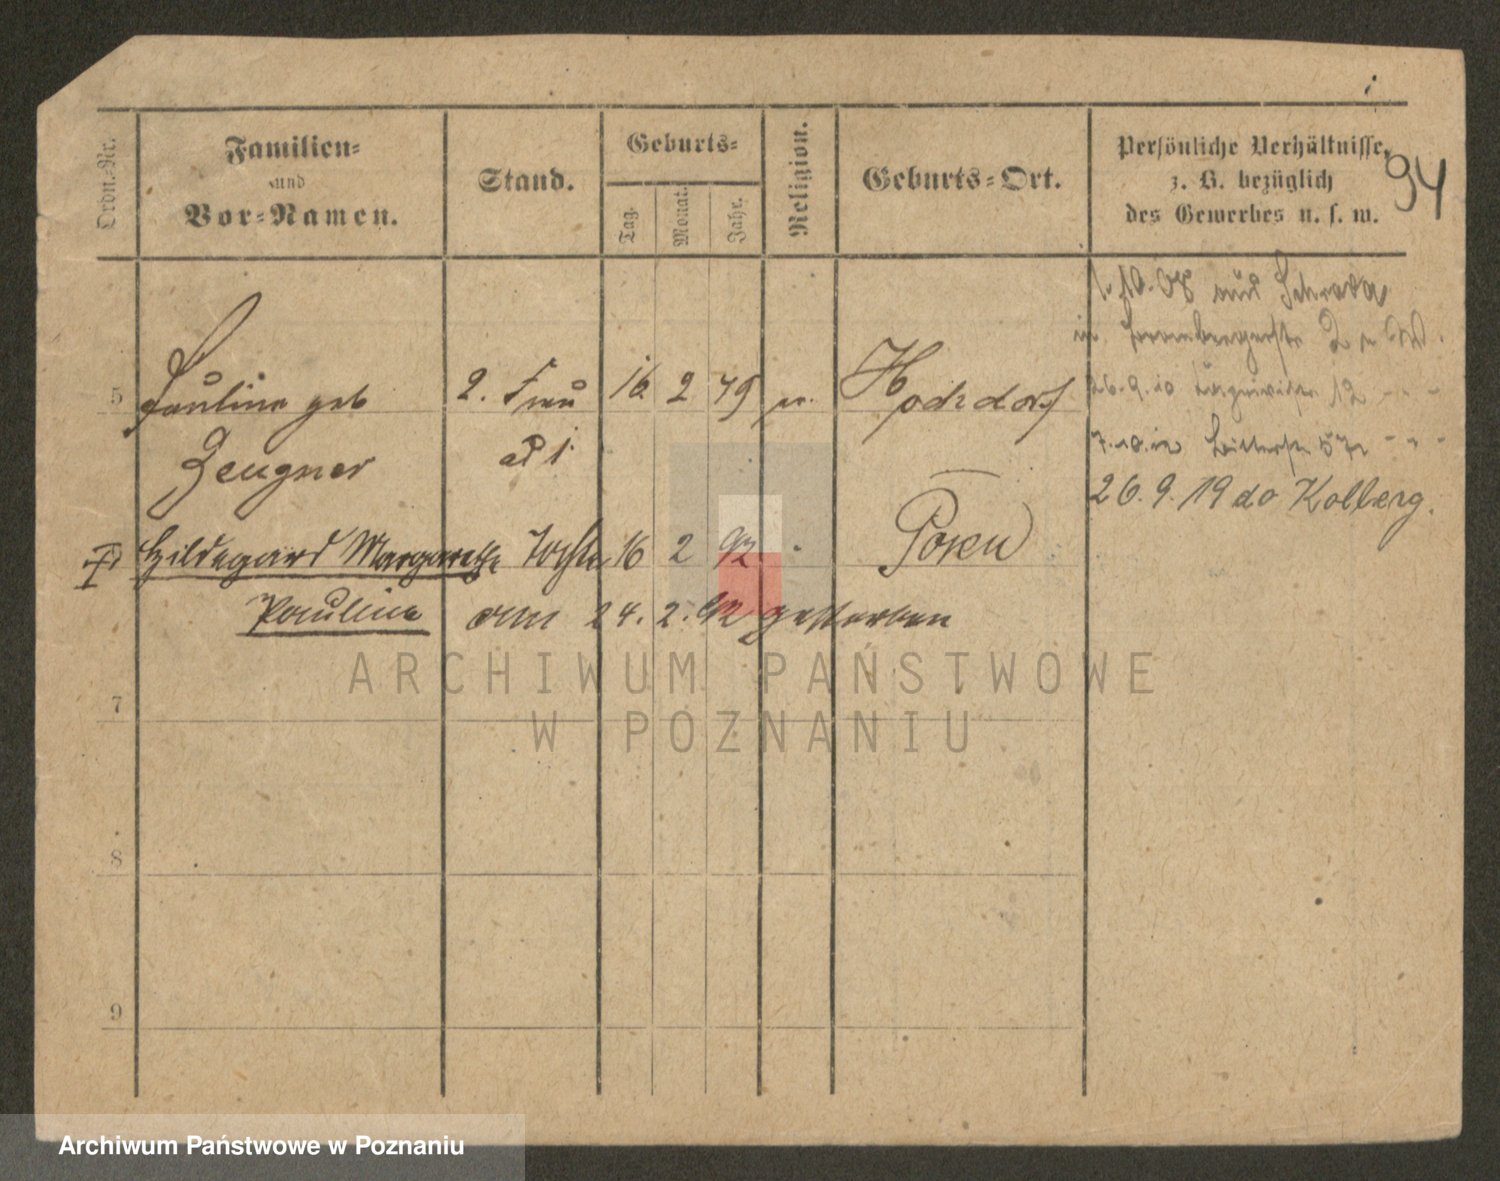 94
Ordn.-Nr.
Familien-
und
Vor-Namen.
Stand.
Geburts-
Tag.
Monat.
Jahr.
Religion.
Geburts-Ort.
Persönliche Verhältnisse,
z. B. bezüglich
des Gewerbes u. s. w.
1.10.08 aus Schroda
in 2
5 Pauline geb 2. Frau 16 2 79 Hochdorf
26.9.10 12 " "
Zeugner
7.10.12 " "
26.9.19 do Kolberg.
Hildegard Margarethe Tochter 16 2 92 Posen
Pauline am 24.2.92 gestorben
7
8
9
ARCHIWUM PAŃSTWOWE
W POZNANIU
Archiwum Państwowe w Poznaniu